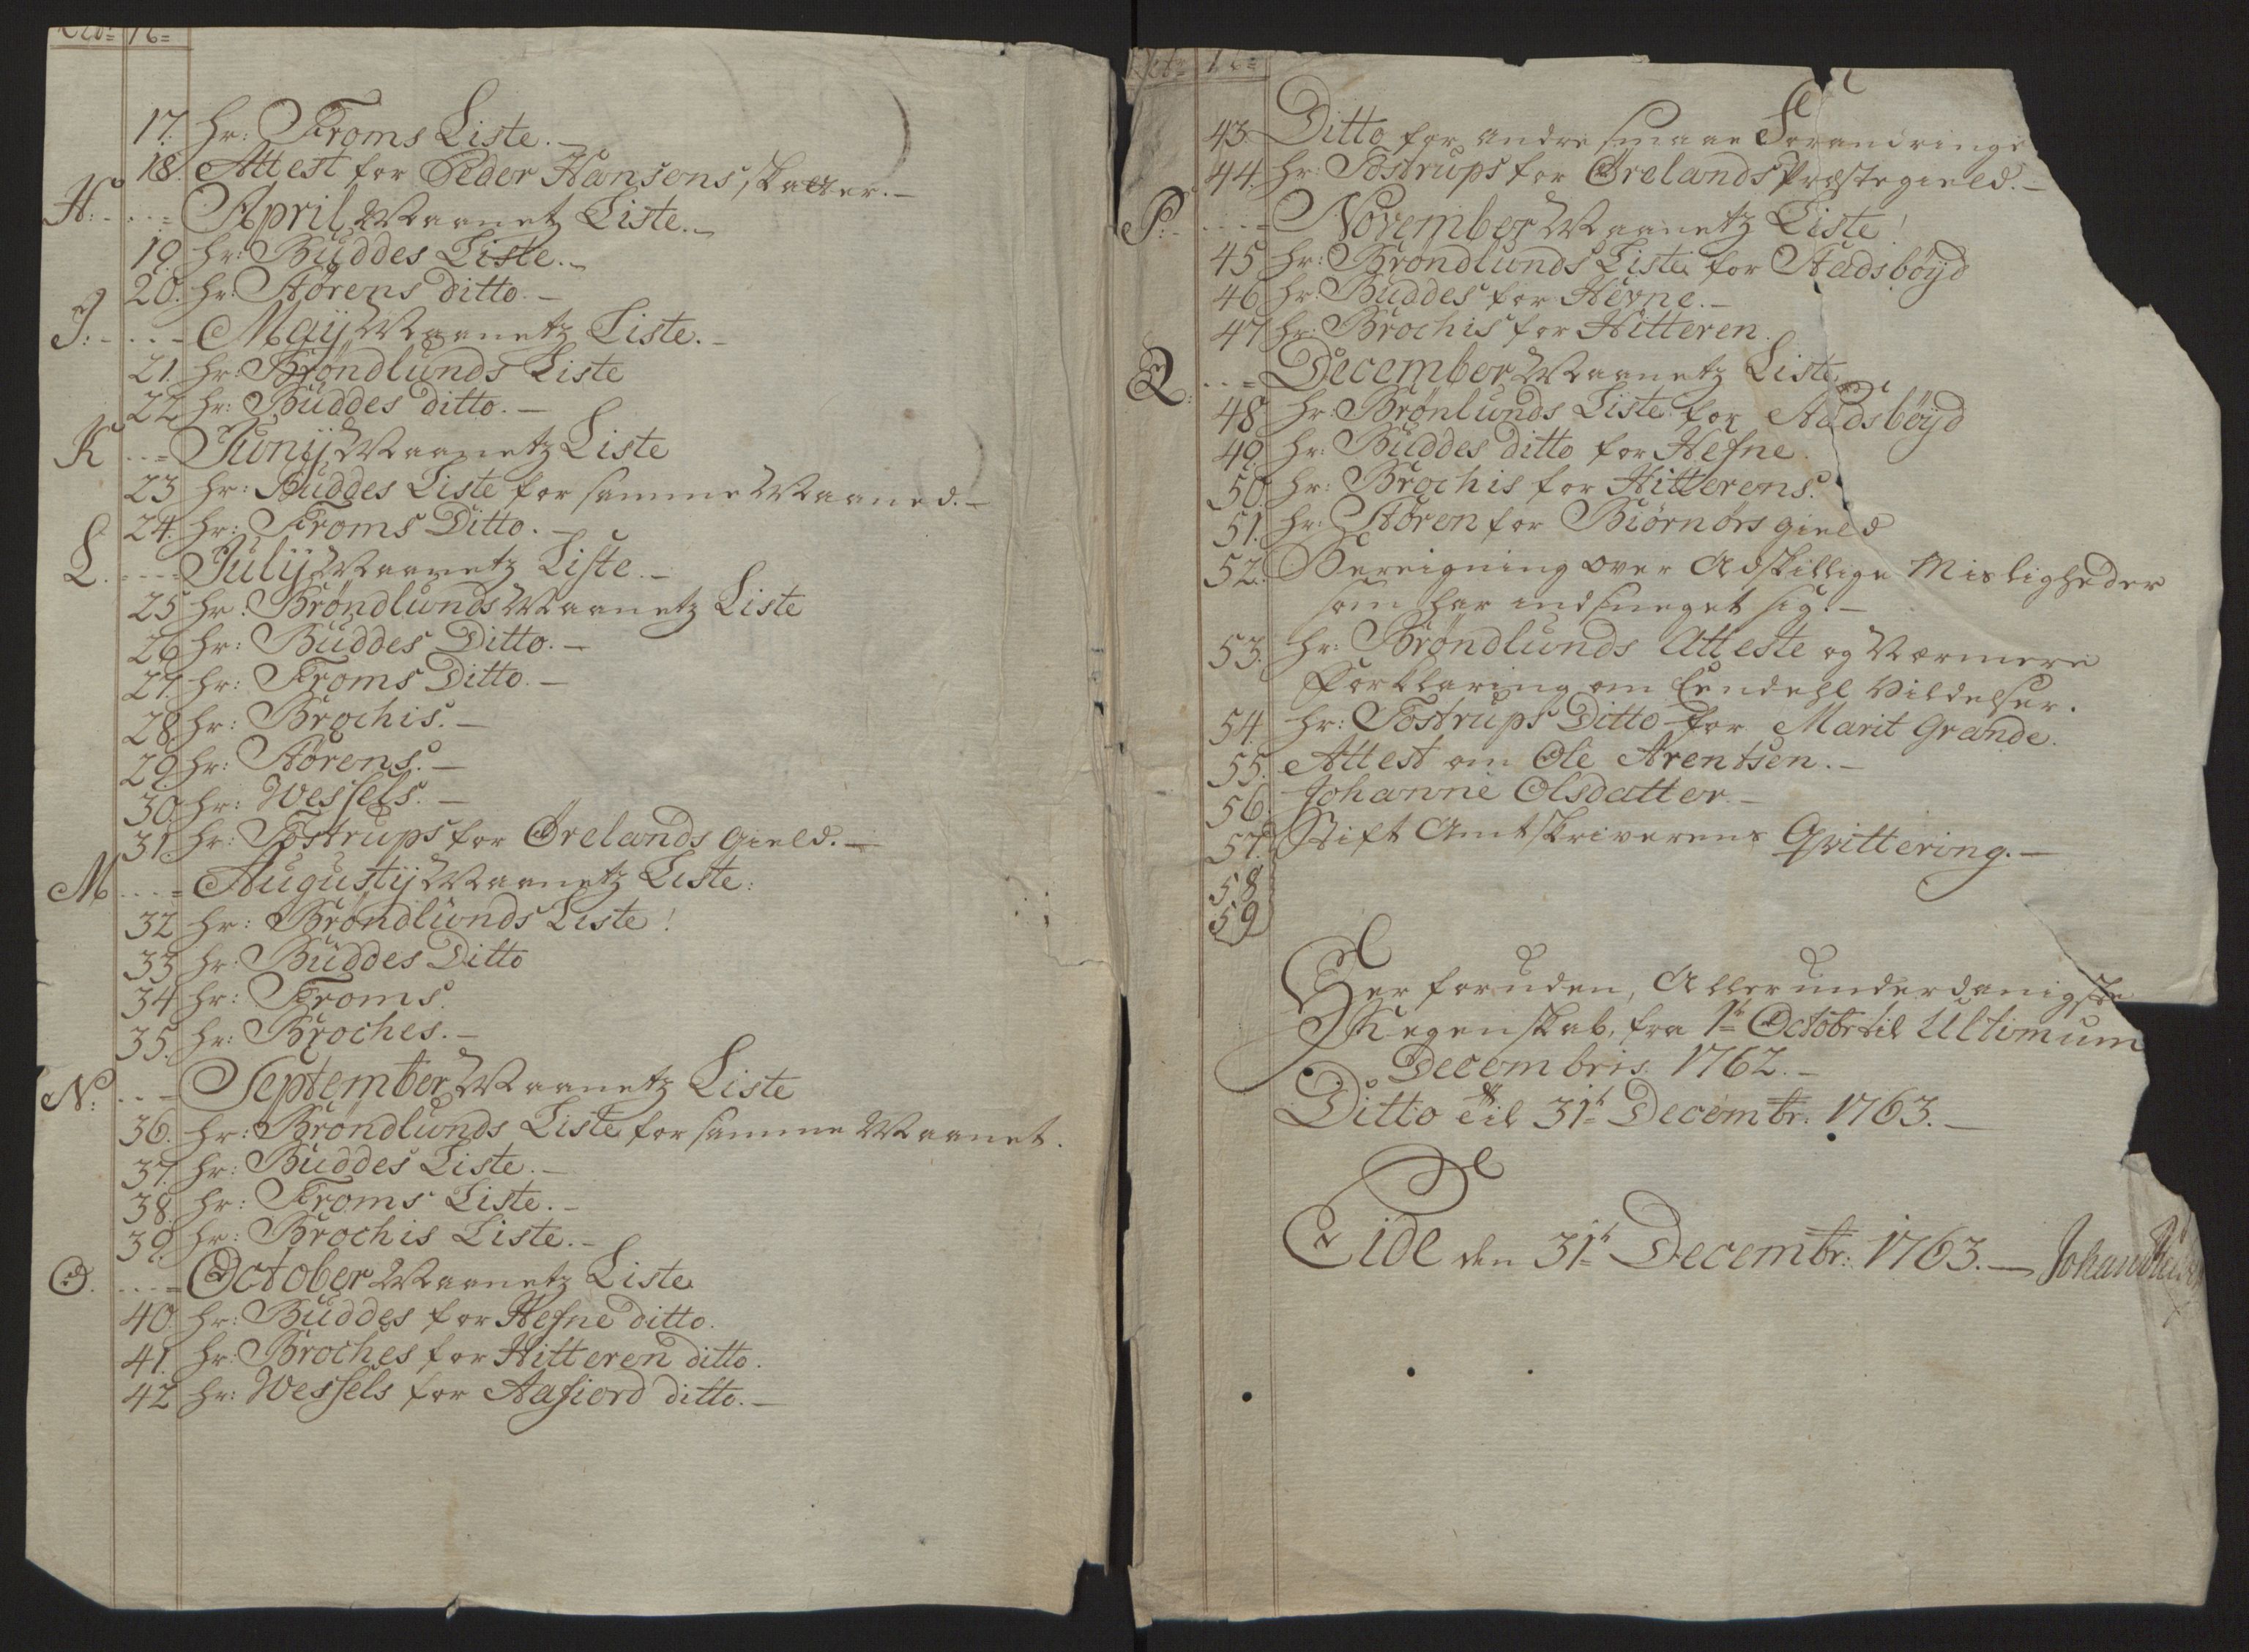 17. hr: Froms Liste. –
18. Attest for Peder Hansens skatter. –
H: - . . = April Maanetz Liste. –
19. hr: Buddes Liste. –
20. hr: Stórens ditto. –
I: - . . - Maij Maanetz Liste. –
21. hr: Bróndlunds Liste
22. hr: Buddes ditto. –
K . . = Junij Maanetz Liste
23 hr: Buddes Liste for samme Maaned. –
24. hr: Froms Ditto. –
L. - - - = Julij Maanetz Liste. –
25 hr: Bróndlunds Maanetz Liste
26 hr: Buddes Ditto. –
27. hr: Froms Ditto. –
28. hr: Brochis. –
29. hr: Stórens. –
30. hr: Wessels. –
31 hr: Tostrups for Órelands Gield. –
M . . . = Augustij Maanetz Liste:
32 hr: Bróndlunds Liste!
33 hr: Buddes Ditto
34 hr: Froms.
35. hr: Broches. –
N: . . - September Maanetz Liste
36. hr: Bróndlunds Liste for samme Maanet.
37. hr: Buddes Liste. –
38. hr: Froms Liste. –
39. hr: Brochis Liste. –
O. . . . = October Maanetz Liste
40. hr: Buddes for Hefne ditto.
41. hr: Broches for Hitteren ditto.
42 hr: Wessels for Aafiord ditto. –
43. Ditto for andre smaae Forandringe
44. hr: Tostrups for Órelands Præstegield. –
P: - . . . = November Maanetz Liste!
45 hr: Bróndlunds Liste for Stadsbóijd
46 hr: Buddes for Hevne. –
47 hr: Brochis for Hitteren.
Q: . . = December Maanetz Liste
48 hr: Brónlunds Liste for Stadsbóijd
49. hr: Buddes ditto for Hefne.
50. hr: Brochis for Hitterens.
51. hr: Stóren for Biórnórs gield
52. Bereigning over Adskillige Misligheder
som har indsneget sig. –
53. hr: Bróndlunds Atteste og Nærmere
Forklaring om Eendehl Vildelser.
54. hr: Tostrups Ditto for Marit Grande.
55. Attest om Ole Arentsen. –
56. Johanne Olsdatter. –
57. Stift Amtskriverens Qvittering. –
58
59
Her foruden, Allerunderdanigste
Regenskab, fra 1te Octobr til Ultimum
Decembris 1762. –
Ditto til 31te Decembr: 1763. –
Eide den 31te Decembr: 1763. – Johan